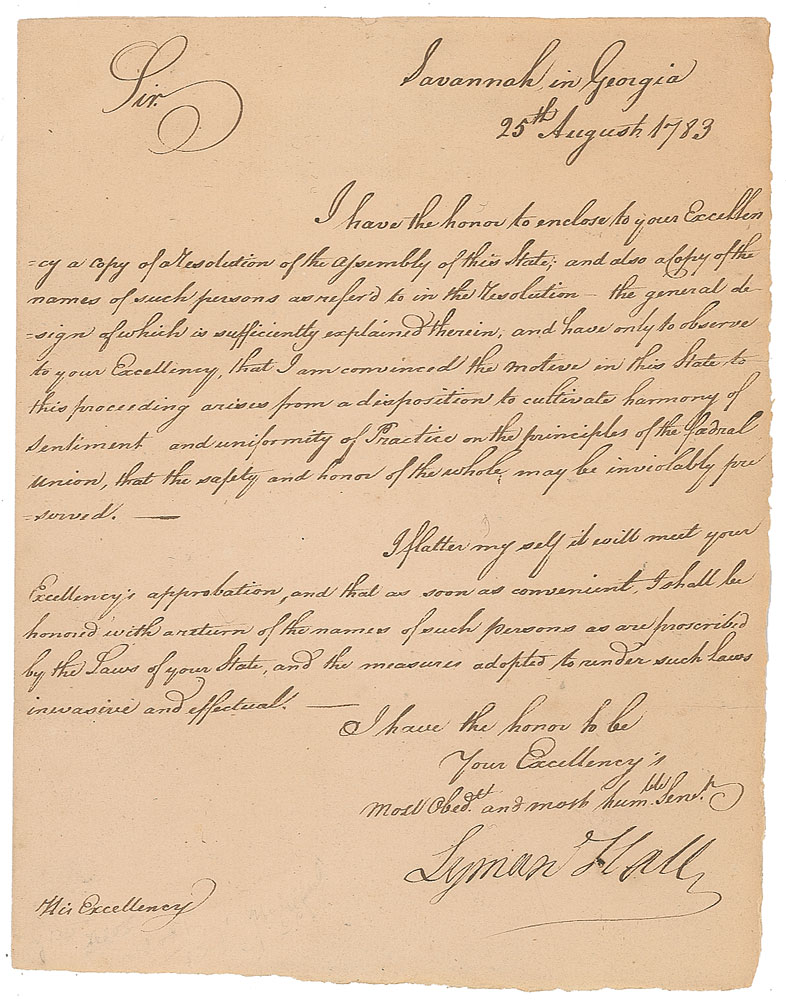 Sir.
Savannah in Georgia
25th August. 1783
I have the honor to enclose to your Excellen
=cy a copy of a Resolution of the Assembly of this State; and also a Copy of the
names of such persons as refer'd to in the Resolution — the general de-
=sign of which is sufficiently explained therein, and have only to observe
to your Excellency, that I am convinced the motive in this State to
this proceeding arises from a disposition to cultivate harmony of
Sentiment and uniformity of Practice on the principles of the fædral
Union, that the safety and honor of the whole, may be inviolably pre
=served. —
I flatter my self it will meet your
Excellency's approbation, and that as soon as convenient, I shall be
honored with a return of the names of such persons as are proscribed
by the Laws of your State, and the measures adopted to render such Laws
inevasive and effectual. —
I have the honor to be
Your Excellency's
Most Obedt. and most humble. Servt.
Lyman Hall
His Excellency